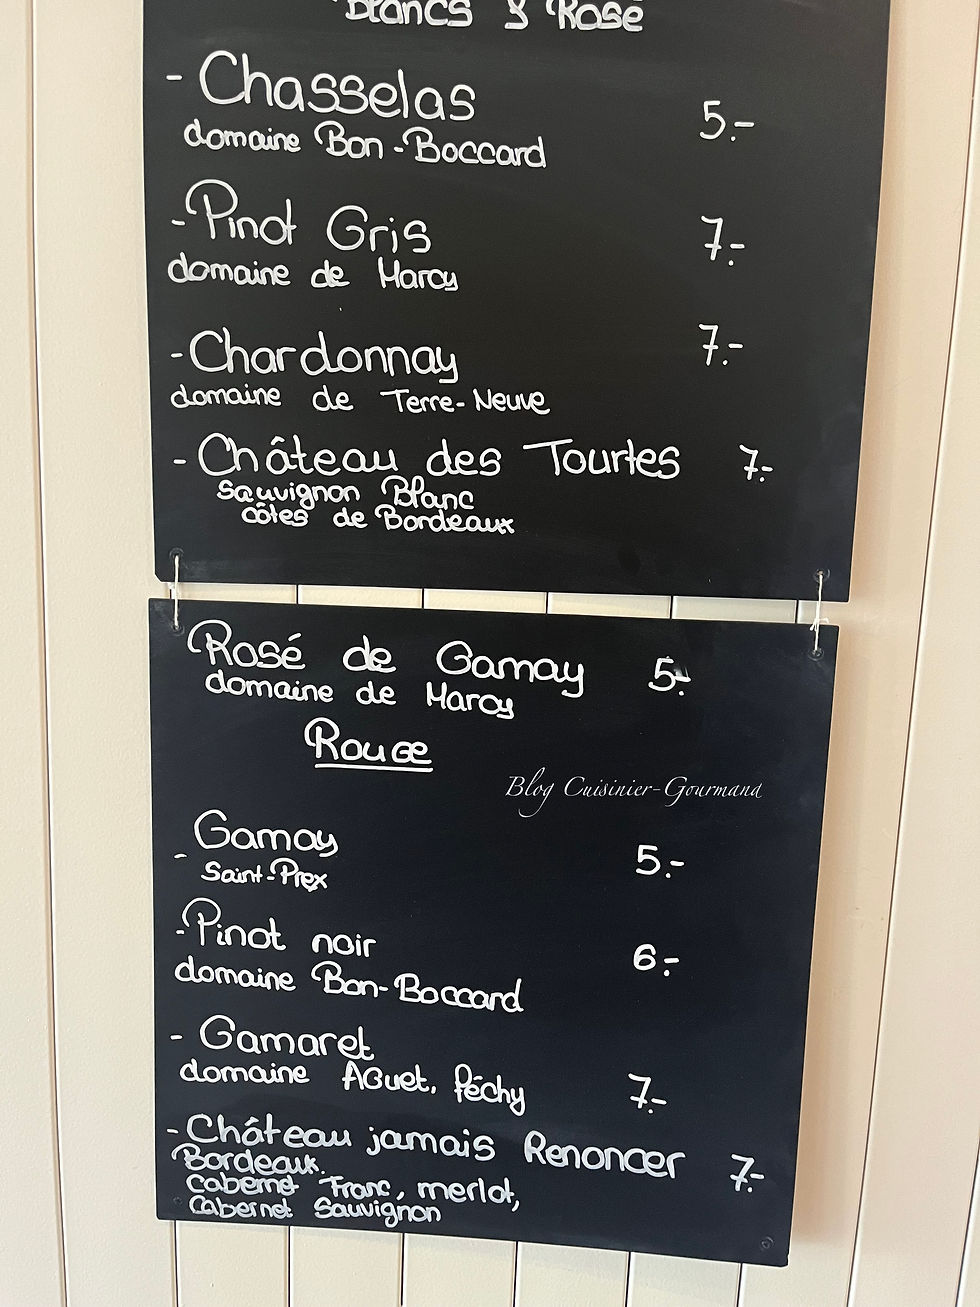 Blancs & Rosé
- Chasselas 5.-
domaine Bon-Boccard
- Pinot Gris 7.-
domaine de Marcy
- Chardonnay 7.-
domaine de Terre-Neuve
- Château des Tourtes 7.-
Sauvignon Blanc
côtes de Bordeaux
Rosé de Gamay 5.-
domaine de Marcy
Rouge
Blog Cuisinier-Gourmand
- Gamay 5.-
Saint-Prex
- Pinot noir 6.-
domaine Bon-Boccard
- Gamaret
domaine Aguet, Péchy 7.-
- Château jamais Renoncer 7.-
Bordeaux.
Cabernet Franc, merlot,
Cabernet Sauvignon